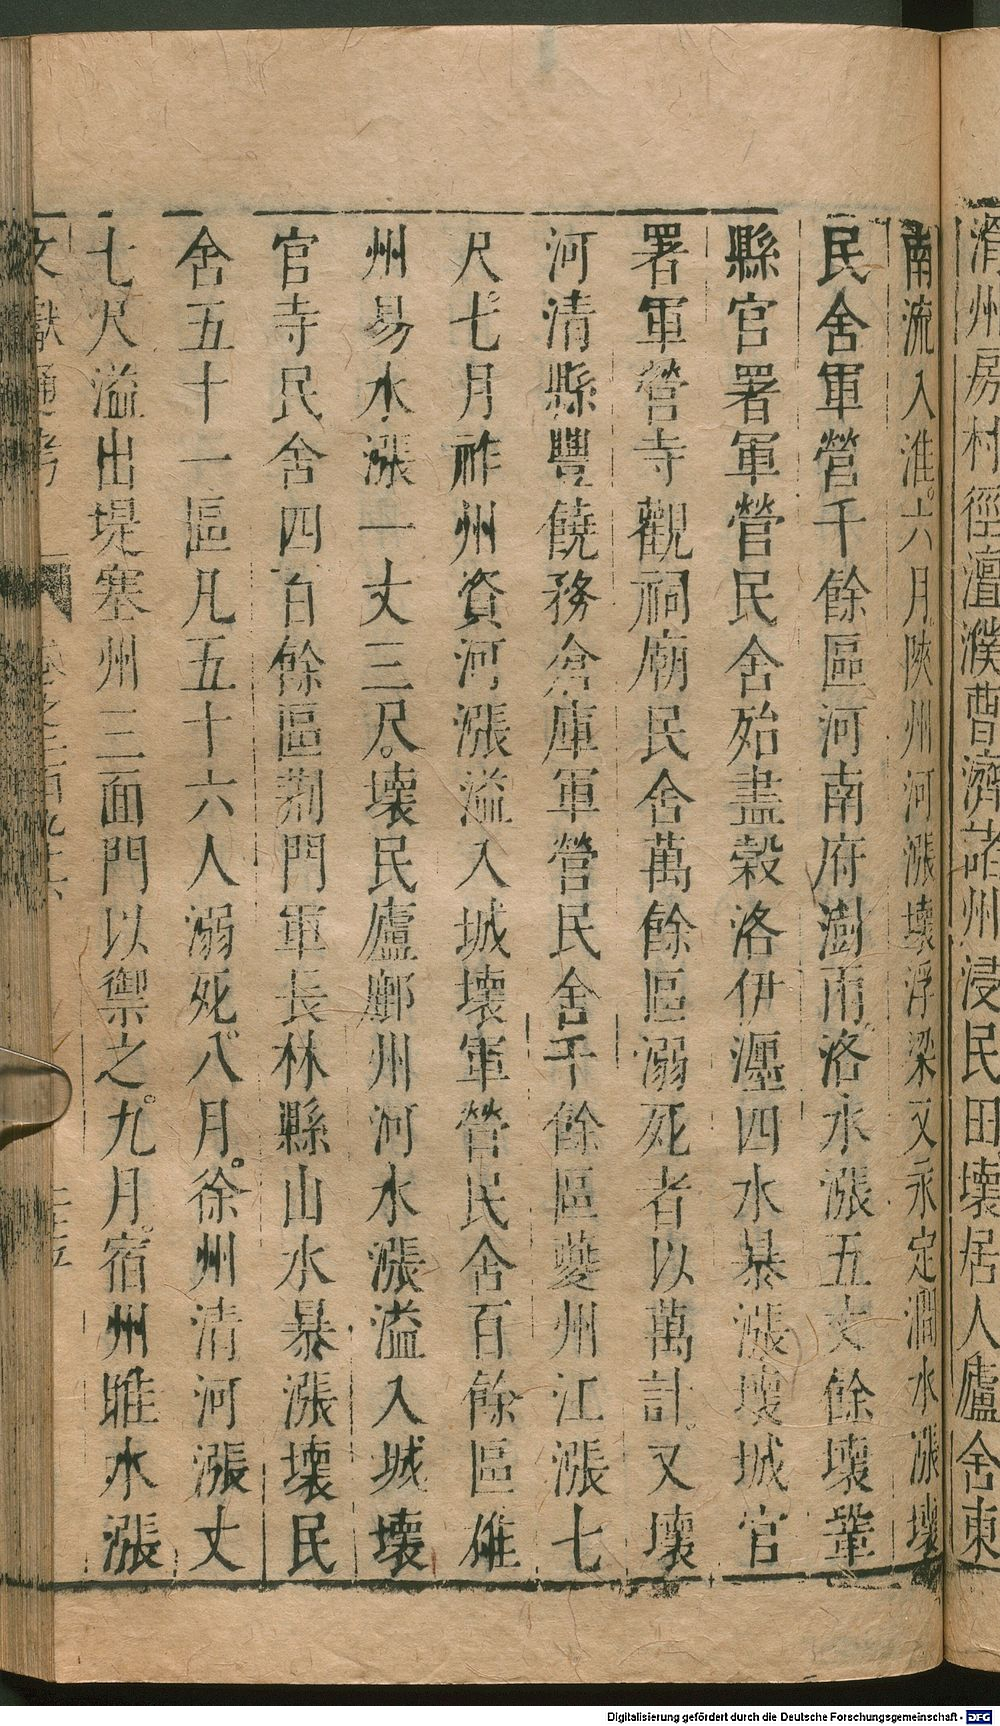 滑州房村徑澶濮曹濟諸州浸民田壞居人廬舍東
南流入淮。六月陝州河漲壞浮梁又永定澗水漲壞
民舍軍營千餘區河南府澍雨洛水漲五丈餘壞鞏
縣官署軍營民舍殆盡榖洛伊瀍四水暴漲壞城官
署軍營寺觀祠廟民舍萬餘區溺死者以萬計。又壞
河清縣豐饒務倉庫軍營民舍千餘區夔州江漲七
尺。七月祚州資河漲溢入城壞軍營民舍百餘區雄
州易水漲一丈三尺。壞民廬鄜州河水漲溢入城壞
官寺民舍四百餘區荆門軍長林縣山水暴漲壞民
舍五十一區凡五十六人溺死。八月。徐州清河漲丈
七尺溢出堤塞州三面門以禦之。九月。宿州睢水漲
文獻通考 卷之二百九十六
Digitalisierung gefördert durch die Deutsche Forschungsgemeinschaft - DFG